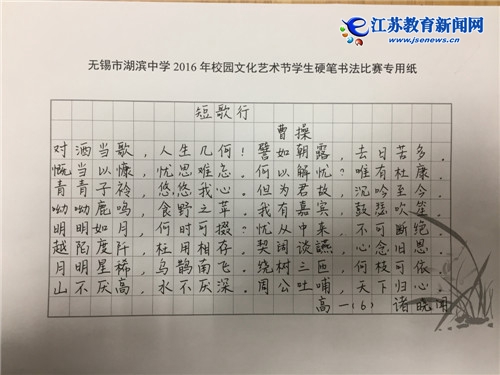 江苏教育新闻网
www.jsenews.cn
无锡市湖滨中学2016年校园文化艺术节学生硬笔书法比赛专用纸
短歌行
曹操
对酒当歌，人生几何！譬如朝露，去日苦多。
慨当以慷，忧思难忘。何以解忧？唯有杜康。
青青子衿，悠悠我心。但为君故，沉吟至今。
呦呦鹿鸣，食野之苹。我有嘉宾，鼓瑟吹笙。
明明如月，何时可掇？忧从中来，不可断绝。
越陌度阡，枉用相存。契阔谈䜩，心念旧恩。
月明星稀，乌鹊南飞。绕树三匝，何枝可依。
山不厌高，水不厌深。周公吐哺，天下归心。
高一(6) 诸晓